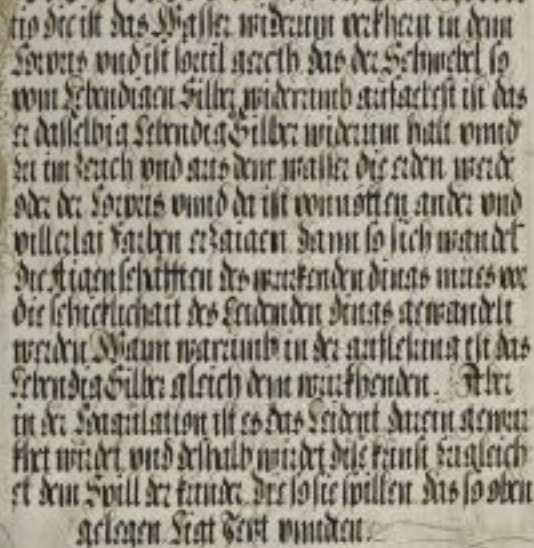 die ist das Wasser widerum verkhern in denn
Corpus und ist sovil geredt das der Schwebel so
vom Lebendigen Silber widerumb aufgelest ist das
er dasselbig Lebendig Silber widerum halt vnnd
im zeuch vnd aus dem wasser die erden werde
oder der Corpus vnnd da ist vonnötten ander vnd
villerlai Farben erzaigen dann so sich wandel
die Aigenschafften des wurckenden dings mues
die schicklichait des Leidenden dings gewandelt
werden Wann warumb in der auflesung ist das
Lebendig Silber gleich dem würckhenden. Aber
in der Coagulation ist es das Leident darein gewur
khet würdet vnd deshalb würdet dise kunst zugleich
et dem Spill der kinder die so sie spillen das so oben
gelegen ligt Jetzt vnnden.